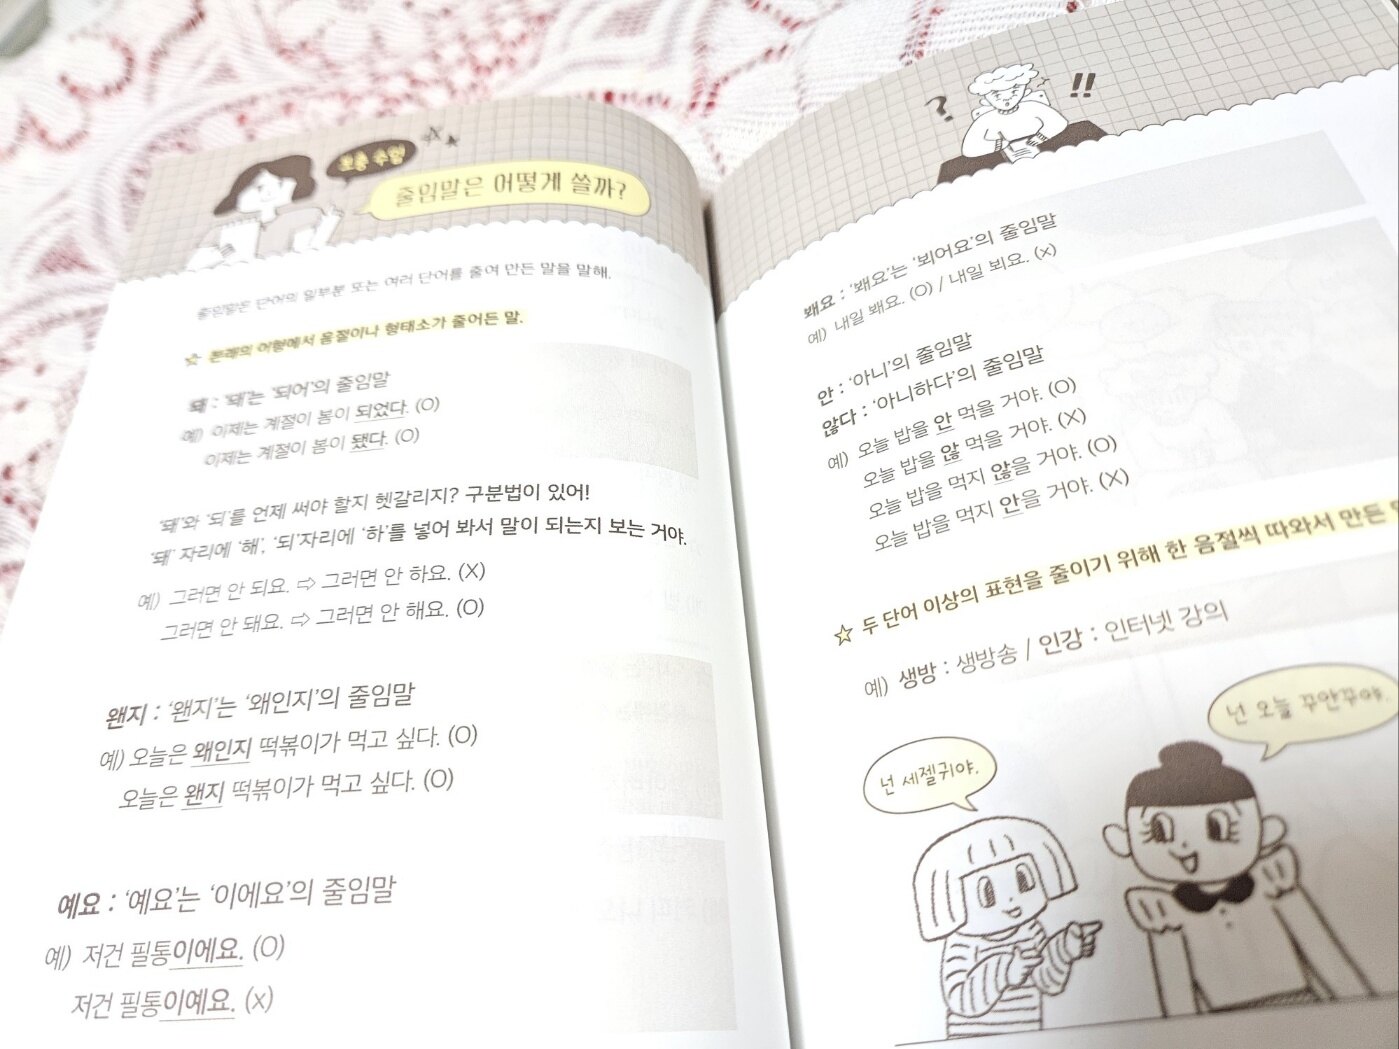 보충 수업
줄임말은 어떻게 쓸까?
줄임말은 단어의 일부분 또는 여러 단어를 줄여 만든 말을 말해.
☆ 본래의 어형에서 음절이나 형태소가 줄어든 말.
돼 : '돼'는 '되어'의 줄임말
예) 이제는 계절이 봄이 되었다. (O)
이제는 계절이 봄이 됐다. (O)
'돼'와 '되'를 언제 써야 할지 헷갈리지? 구분법이 있어!
'돼' 자리에 '해', '되'자리에 '하'를 넣어 봐서 말이 되는지 보는 거야.
예) 그러면 안 되요. ⇨ 그러면 안 하요. (X)
그러면 안 돼요. ⇨ 그러면 안 해요. (O)
왠지 : '왠지'는 '왜인지'의 줄임말
예) 오늘은 왜인지 떡볶이가 먹고 싶다. (O)
오늘은 왠지 떡볶이가 먹고 싶다. (O)
예요 : '예요'는 '이에요'의 줄임말
예) 저건 필통이에요. (O)
저건 필통이예요. (x)
? !!
봬요 : '봬요'는 '뵈어요'의 줄임말
예) 내일 봬요. (O) / 내일 뵈요. (x)
안 : '아니'의 줄임말
않다 : '아니하다'의 줄임말
예) 오늘 밥을 안 먹을 거야. (O)
오늘 밥을 않 먹을 거야. (X)
오늘 밥을 먹지 않을 거야. (O)
오늘 밥을 먹지 안을 거야. (X)
☆ 두 단어 이상의 표현을 줄이기 위해 한 음절씩 따와서 만든
예) 생방 : 생방송 / 인강 : 인터넷 강의
넌 오늘 꾸안꾸야.
넌 세젤귀야.